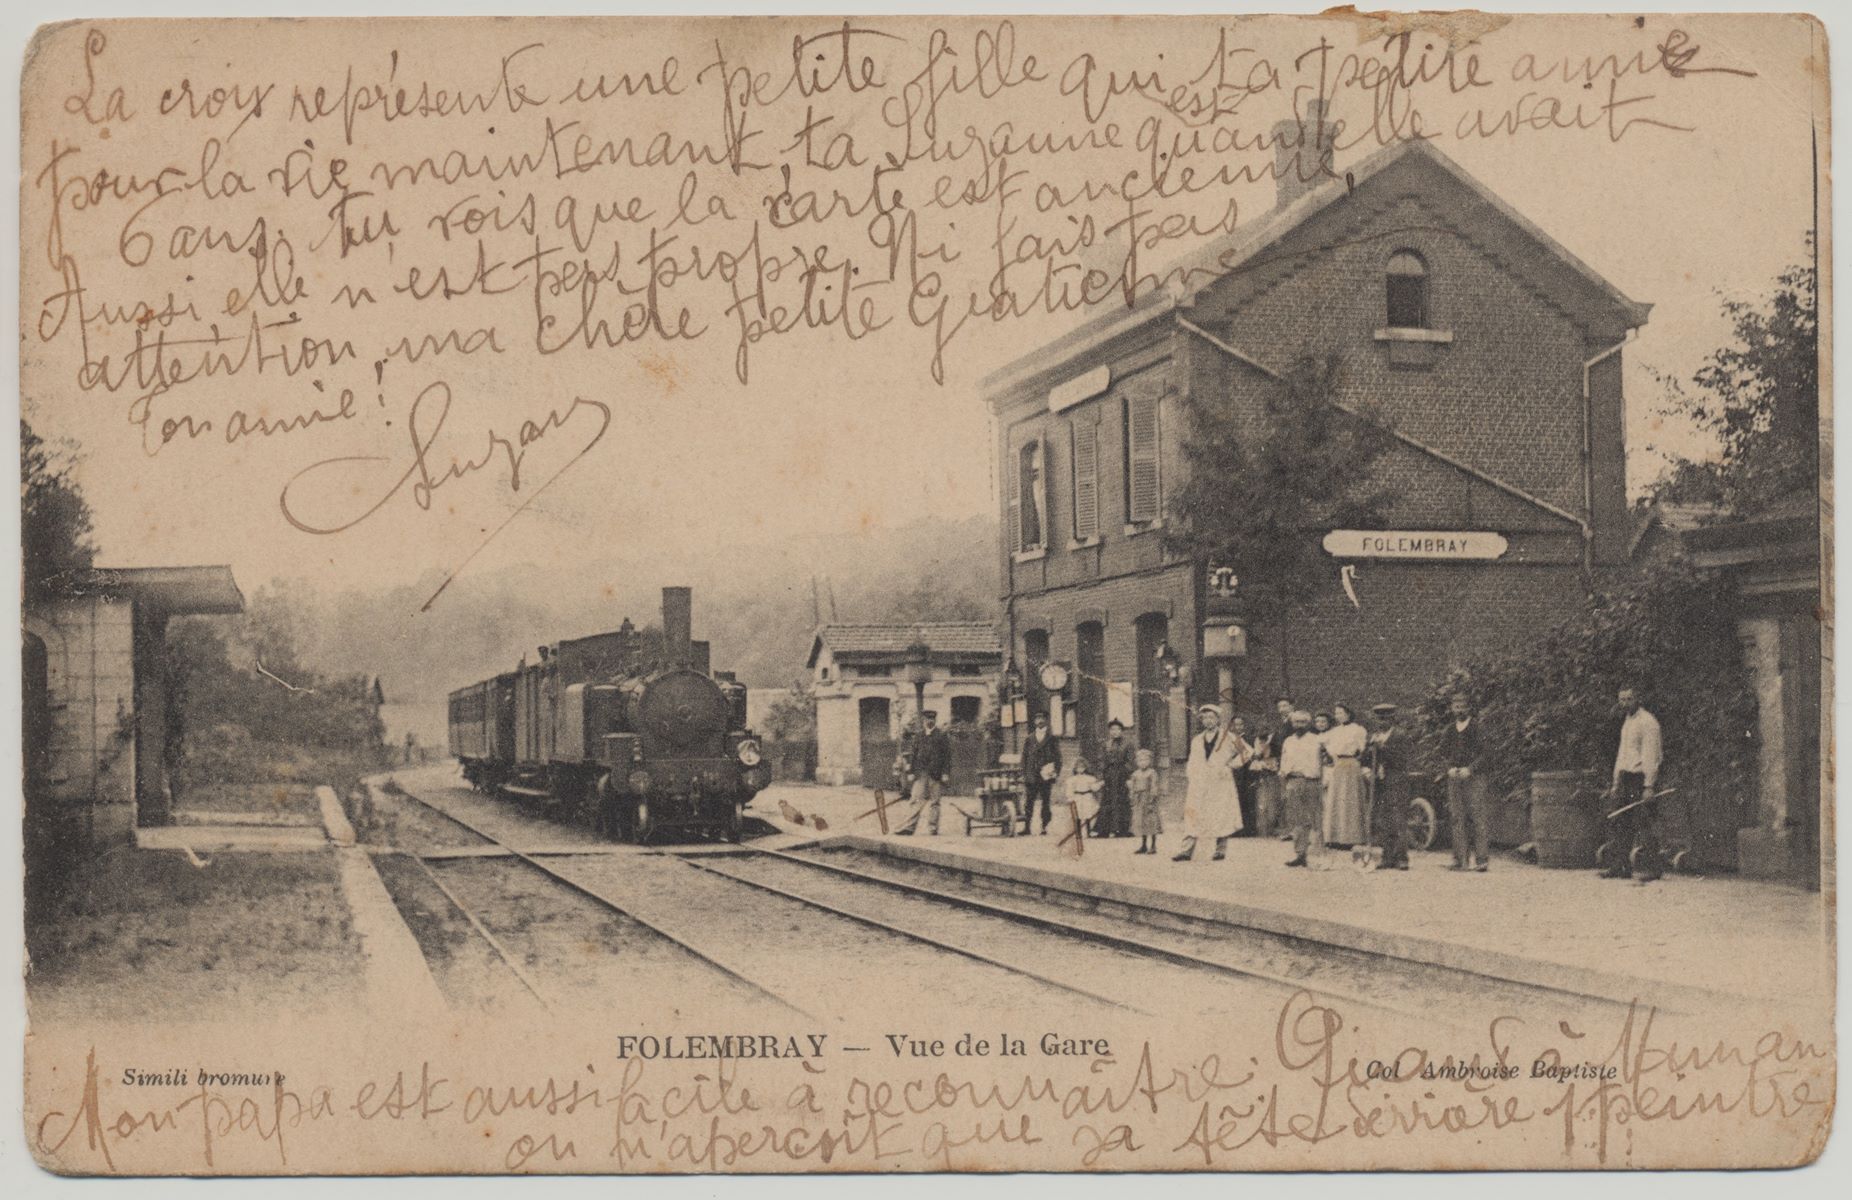 La croix représente une petite fille qui est ta petite amie
pour la vie maintenant, ta Suzanne quand elle avait
6 ans. tu vois que la carte est ancienne,
Aussi elle n'est pas propre. Ni fais pas
attention, ma chère petite Gratienne
Ton amie!
Suzan
FOLEMBRAY
FOLEMBRAY — Vue de la Gare
Simili bromure
Col Ambroise Baptiste
Mon papa est aussi facile à reconnaître. Quant à Maman
on n'aperçoit que sa tête derrière 1 peintre